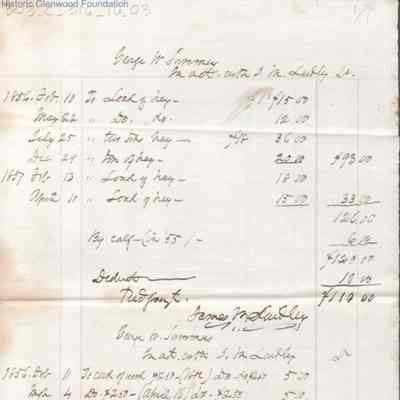 Historic Glenwood Foundation
George W. Summers
In act. with J. M. Laidley Dr.
1856. Feb. 10 To Load of hay — $15.00
May 22 " Do. Do. 12.00
July 25 " two tons hay — 36.00
Dec 29 " ton of hay — 30.00 $93.00
1857 Feb 13 " Load of hay — 18.00
April 10 " Load of hay — 15.00 33.00
126.00
By calf —
6.00
$120.00
Deduct 10.00
$110.00
James M Laidley
George W. Summers
In act. with J. M. Laidley Dr
1856. Feb 11 To cord of wood $2.50 5.00
Mch 4 Do. $2.50 — (April 15) do. $2.50 5.00